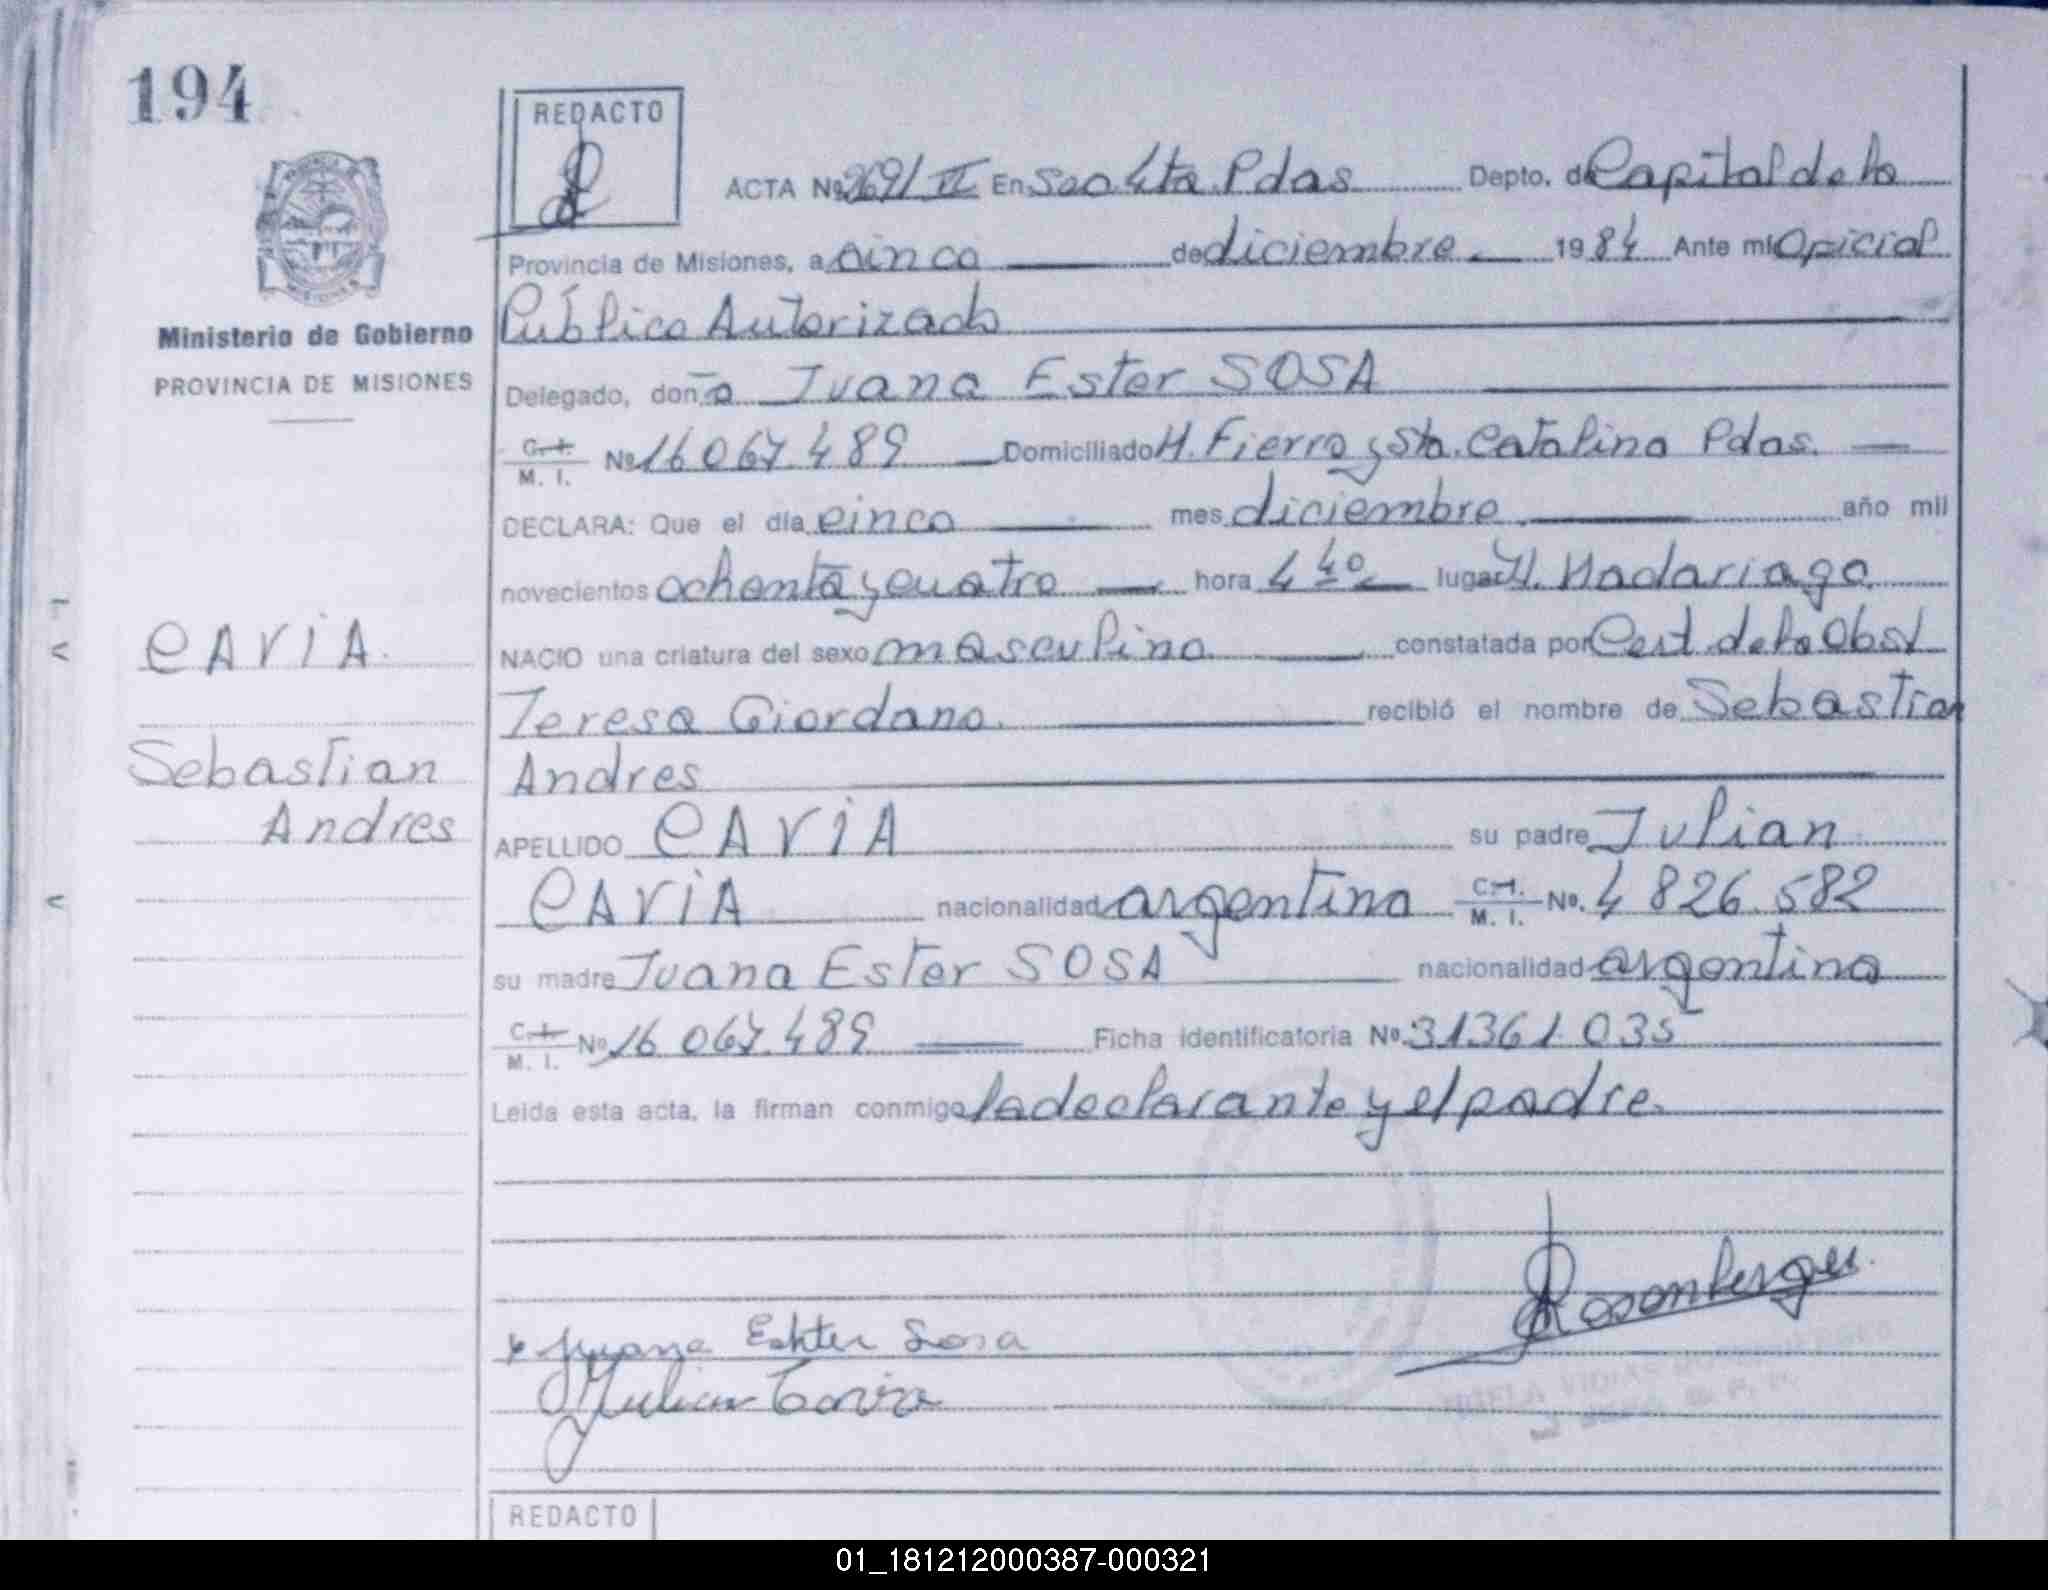 194
REDACTO
ACTA Nº 269/II En Secc 4ta. Pdas Depto. de Capital de la
Provincia de Misiones, a cinco de diciembre 1984 Ante mi Oficial
Público Autorizado
Ministerio de Gobierno
PROVINCIA DE MISIONES
Delegado, doña Juana Ester SOSA
C. I. M. I. Nº 16 067.489 Domiciliado H. Fierro y Sta. Catalina Pdas.
DECLARA: Que el día cinco mes diciembre año mil
novecientos ochenta y cuatro hora 4 40 lugar H. Madariaga.
NACIO una criatura del sexo masculino constatada por Cert. de la Obst
Teresa Giordano. recibió el nombre de Sebastian
Andres
CAVIA.
Sebastian
Andres
APELLIDO CAVIA su padre Julian
CAVIA nacionalidad argentina C. I. M. I. Nº. 4 826.582
su madre Juana Ester SOSA nacionalidad argentina
C. I. M. I. Nº 16 067.489 Ficha identificatoria Nº. 31361.035
Leida esta acta, la firman conmigo la declarante y el padre.
Juana Ester Sosa
Julian Cavia
REDACTO
01_181212000387-000321